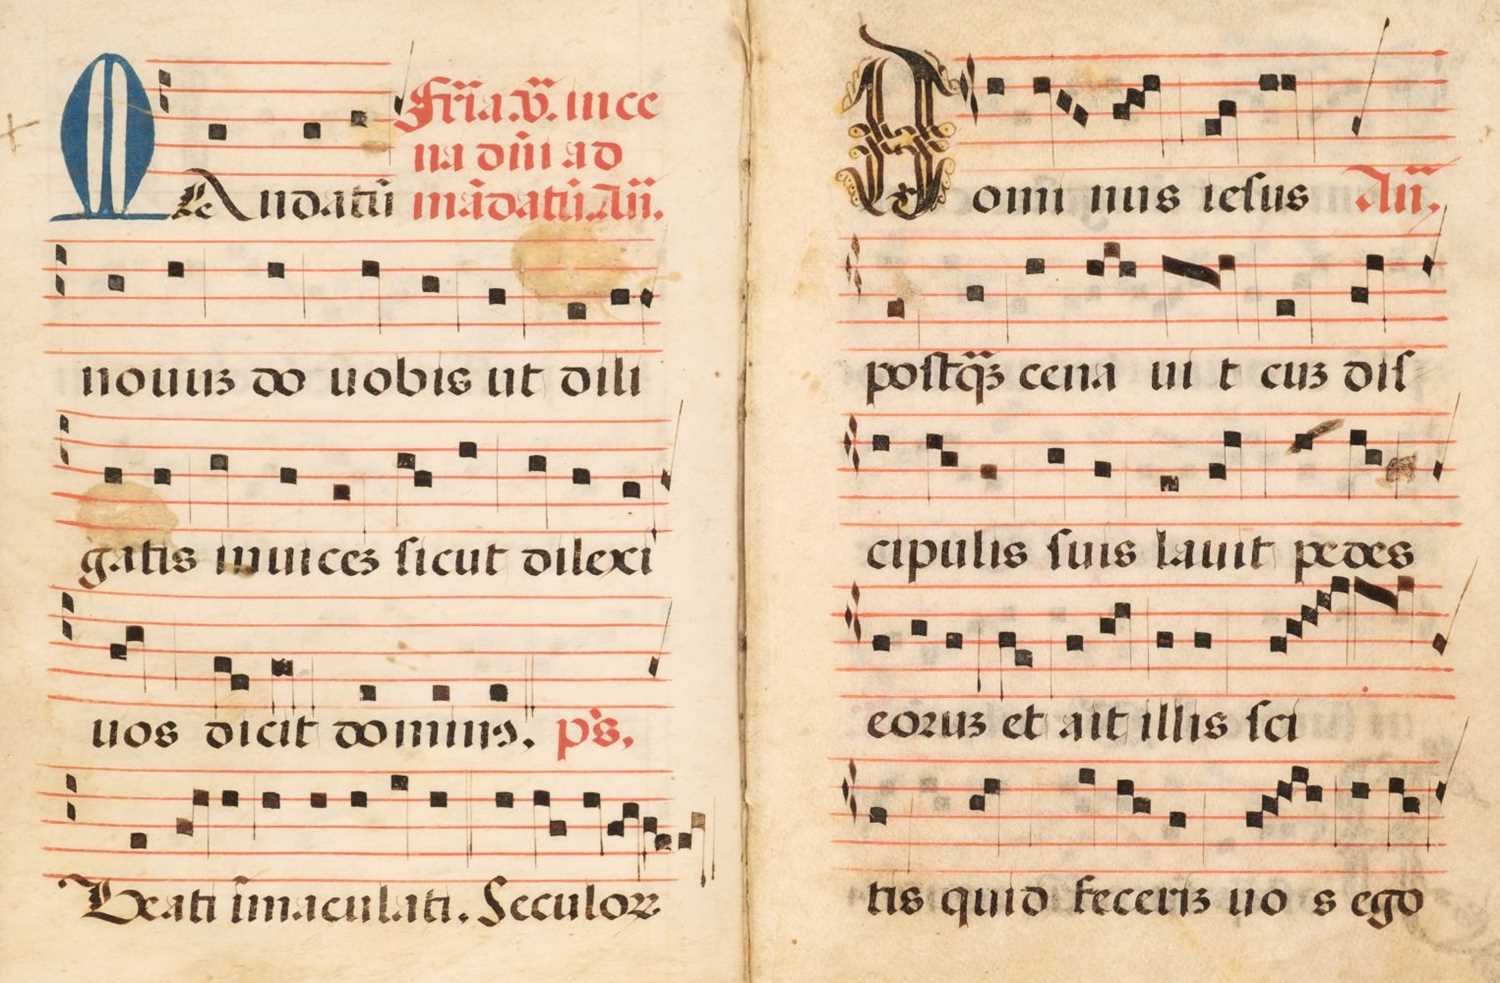 MAndatū
Fr̄ia. v̄. in ce
na dn̄i ad
mādatū. An̄.
nouuꝫ do uobis ut dili
gatis inuiceꝫ sicut dilexi
uos dicit dominus. ps̄.
Beati īmaculati. Seculoꝝ
Domi nus iesus An̄.
postq̄ꝫ cena ui t cuꝫ dis
cipulis suis lauit pedes
eoruꝫ et ait illis sci
tis quid feceriꝫ uo s ego